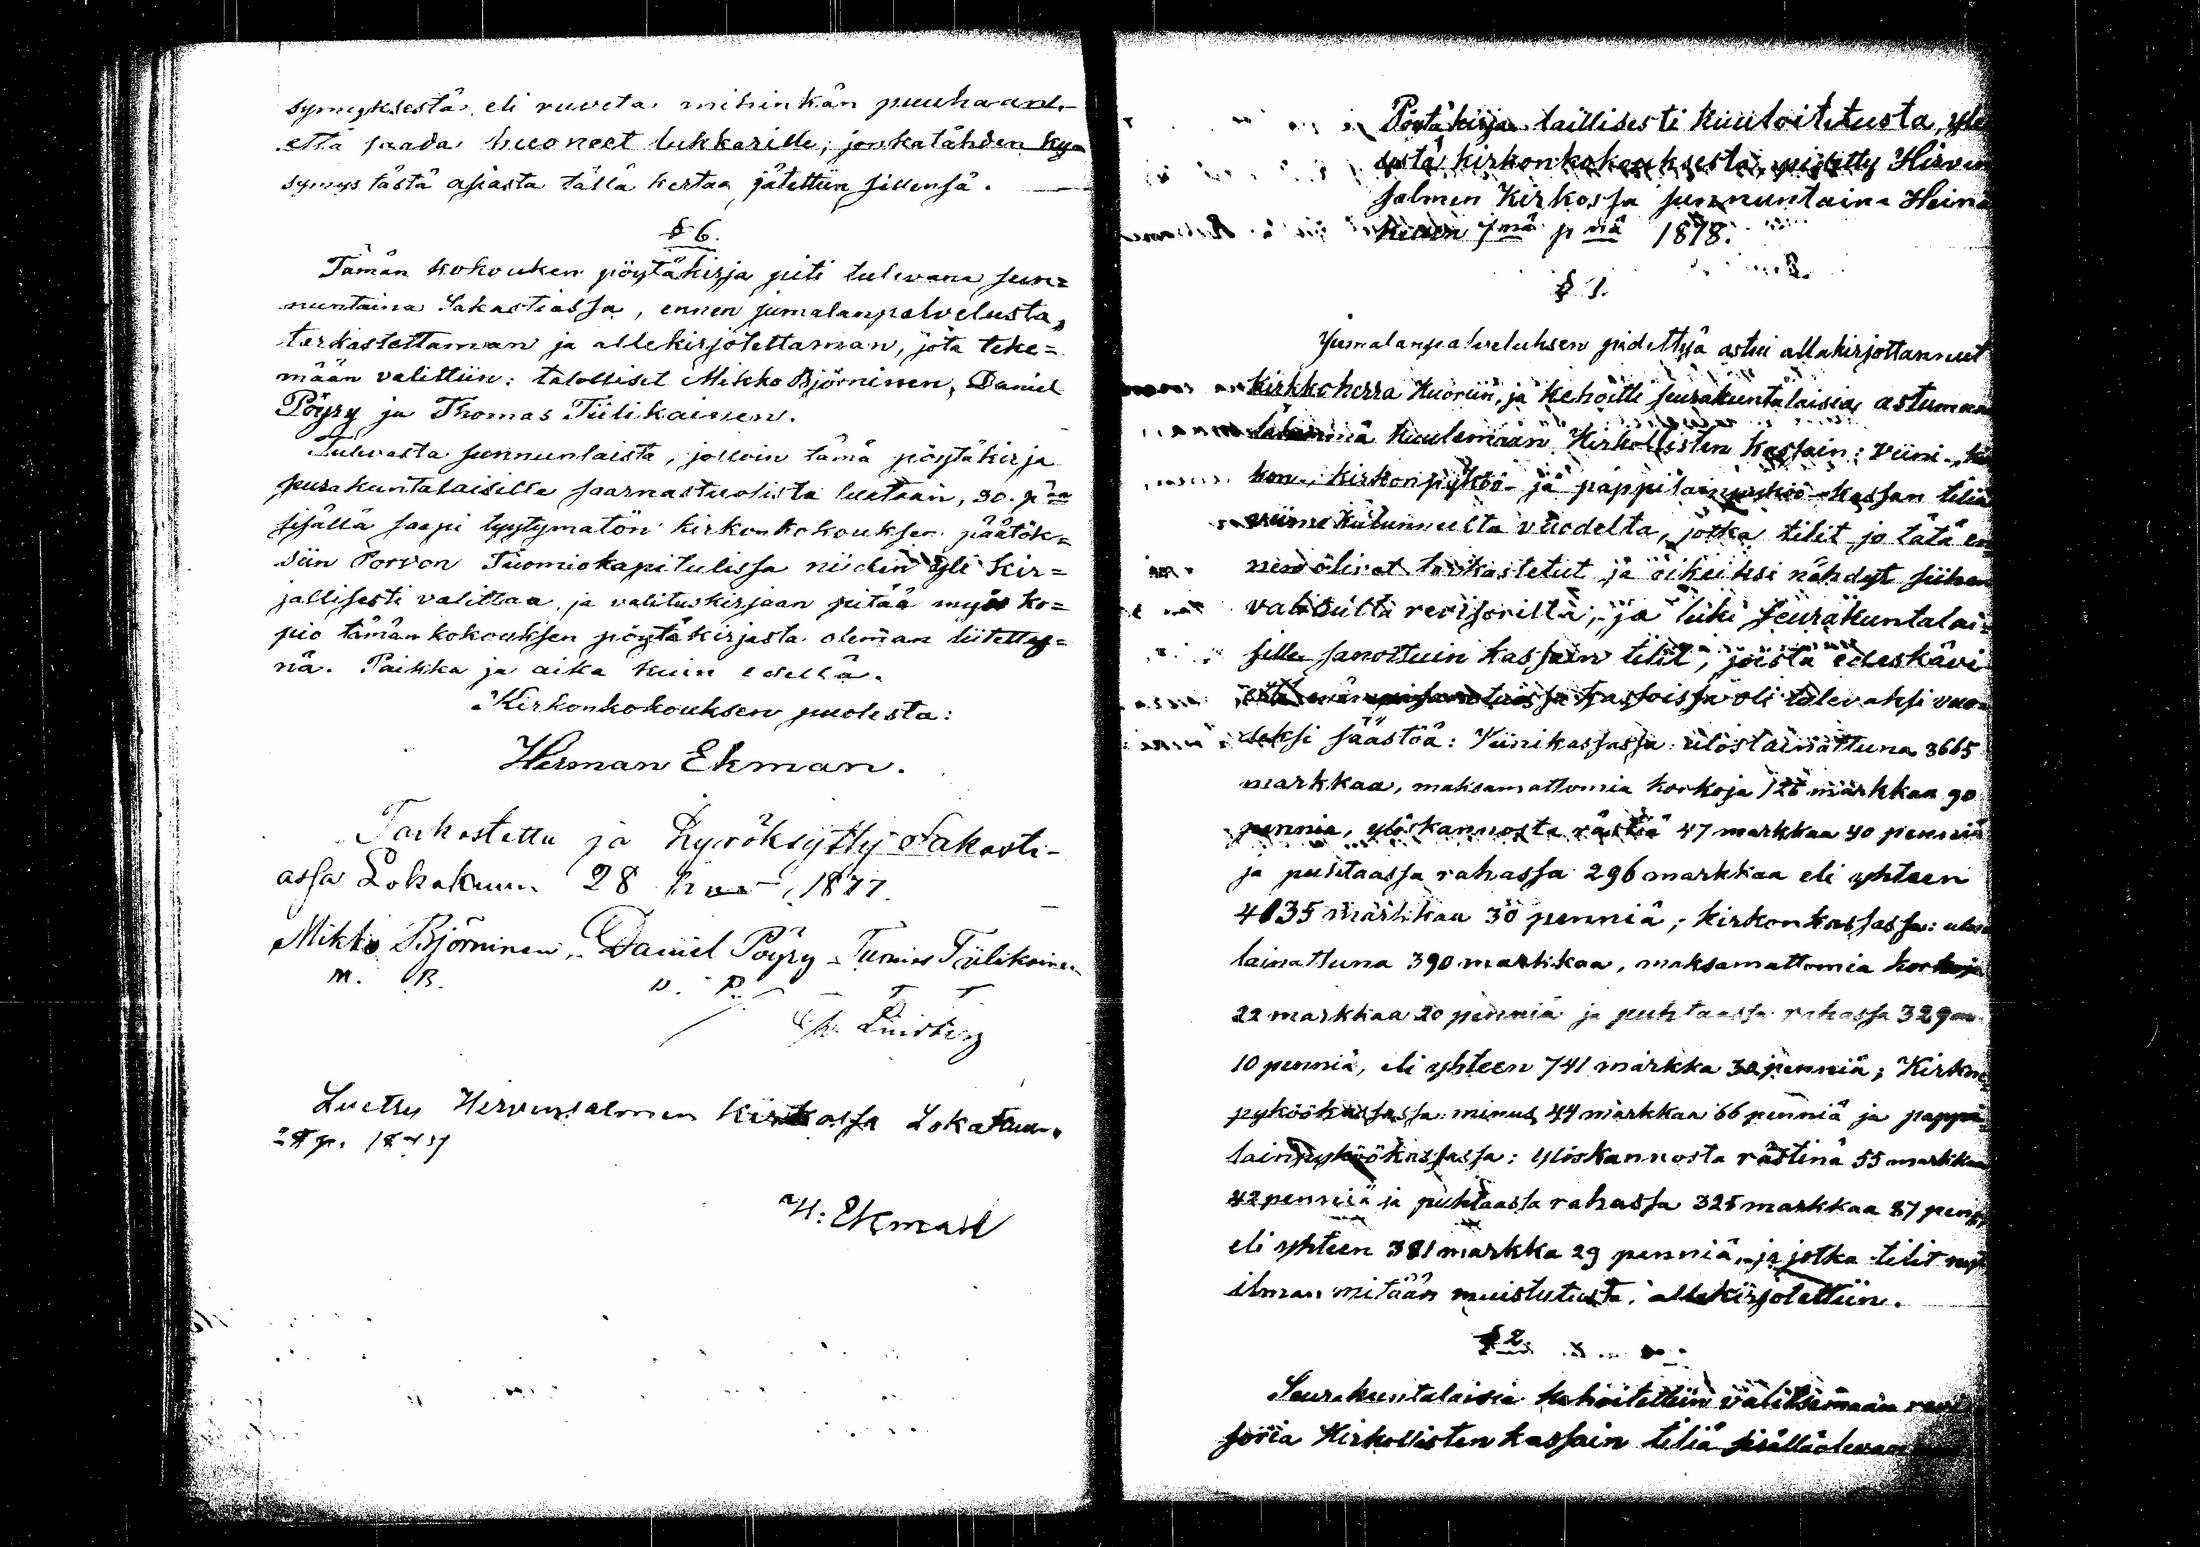 symyksestä eli ruveta mihinkän puuhaan
että saada huoneet lukkarille, jonkatähden ky=
symys tästä asiasta tällä kertaa jätettiin sillensä.
§ 6.
Tämän kokouken pöytäkirja piti tulevana sun=
nuntaina Sakastiassa, ennen jumalanpalvelusta,
tarkastettaman ja allekirjotettaman, jota teke=
mään valittiin: talolliset Mikko Björninen, Daniel
Pöyry ja Thomas Tiilikainen.
Tulevasta sunnuntaista, jolloin tämä pöytäkirja
seurakuntalaisille saarnastuolista luetaan, 30. p:vä
sisällä saapi tyytymatön kirkonkokouksen päätök=
siin Porvon Tuomiokapitulissa niiden yli kir=
jallisesti valittaa ja valituskirjaan pitää myös ko=
pio tämän kokouksen pöytäkirjasta oleman liitetty=
nä. Paikka ja aika kuin edellä.
Kirkonkokouksen puolesta:
Herman Ekman.
Tarkastettu ja hyväksytty Sakasti-
assa Lokakuun 28 1877.
Mikko Björninen, Daniel Pöyry Tuomas Tiilikainen
M. B. D. P. T T
Luettu Hirvensalmen kirkossa Lokakuun
28 p. 1877
H: Ekman
Pöytäkirja laillisesti kuuloitetusta, yle
sestä kirkonkokouksesta, pidetty Hirven
salmen Kirkossa sunnuntaina Heinä
kuun 7nä pnä 1878.
§ 1.
Jumalanpalveluksen pidettyä astui allakirjottannut
kirkkoherra kuoriin, ja kehoitti seurakuntalaisia astumaan
kuulemaan Kirkollisten kassain: Viini-, kir
kon-, kirkonpyköö- ja pappilainpyköö-kassan tiliä
viime kuluneelta vuodelta, jotka tilit jo tätä en
nen olivat tarkastetut ja oikeiksi nähdyt siihen
valituilta revisorilta; ja luki seurakuntalai=
sille sanottuin kassain tilit, joista edeskävi
että kassoissa oli tulevaksi vuo=
deksi säästöä: Viinikassassa: ulostainattuna 3665
markkaa, maksamattomia korkoja 126 markkaa 90
penniä, ylöskannosta rästiä 47 markkaa 40 penniä
ja puhtaassa rahassa 296 markkaa eli yhteen
4135 markkaa 30 penniä; kirkonkassassa: ulos
lainattuna 390 markkaa, maksamattomia korkoja
22 markkaa 20 penniä ja puhtaassa rahassa 329 m.
10 penniä, eli yhteen 741 markka 30 penniä; Kirkon
pyköökassassa: minus 44 markkaa 66 penniä ja pappi
lainpyköökassassa: ylöskannosta rästinä 55 markkaa
42 penniä ja puhtaassa rahassa 325 markkaa 87 penniä
eli yhteen 381 markka 29 penniä, ja jotka tilit nyt
ilman mitään muistutusta allekirjotettiin.
§ 2.
Seurakuntalaisia kehoitettiin valitsemaan revi
soria Kirkollisten kassain tiliä sisälläolevan